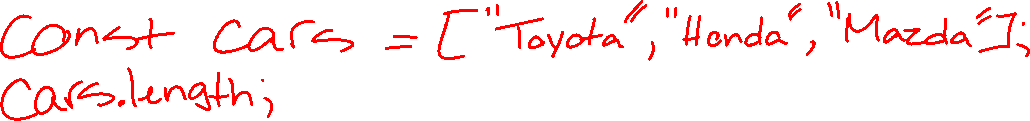 const cars = ["Toyota", "Honda", "Mazda"];
cars.length;